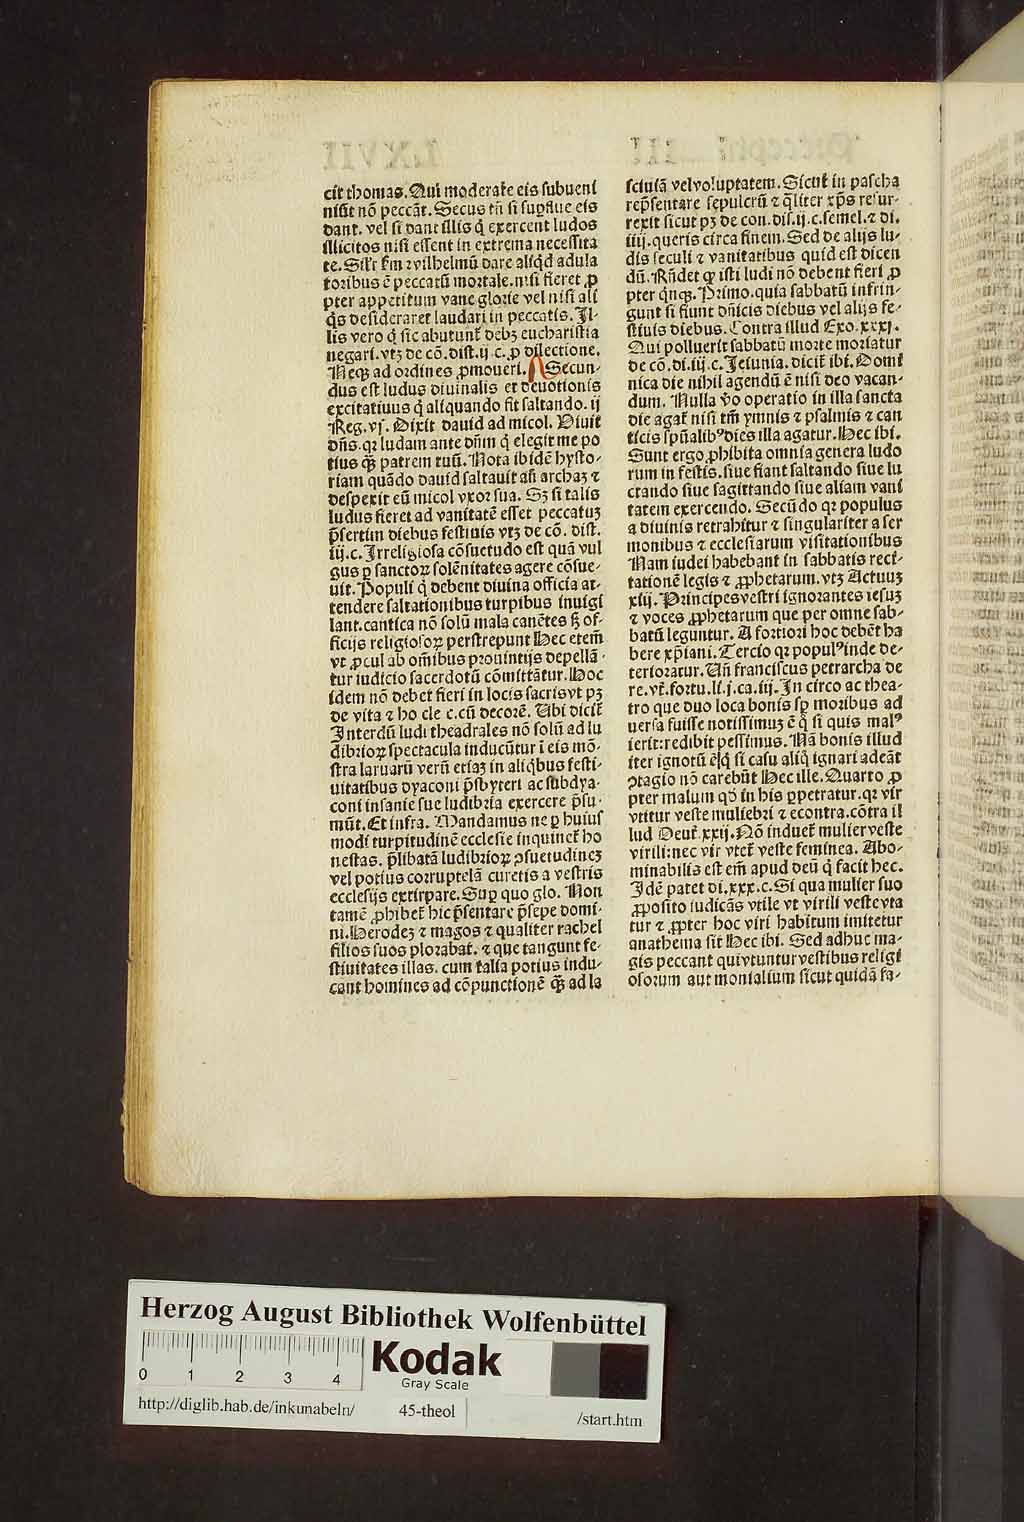 cit thomas. Qui moderate eis subueni
niūt nō peccāt. Secus tn̄ si suꝑflue eis
dant. vel si dant illis q̄ exercent ludos
illicitos nisi essent in extrema necessita
te. Silr̄ fm̄ wilhelmū dare aliqd adula
toribus ē peccatū mortale. nisi fieret ꝓ
pter appetitum vane glorie vel nisi ali
q̄s desideraret laudari in peccatis. Il-
lis vero q̄ sic abutunt̄ debꝫ eucharistia
negari. vtꝫ de cō. dist. ij c. ꝓ dilectione.
Neqꝫ ad ordines ꝓmoueri. Secun-
dus est ludus diuinalis et deuotionis
excitatiuus q̄ aliquando fit saltando. ij
Reg. vj. Dixit dauid ad micol. Viuit
dn̄s. qꝛ ludam ante dn̄m q̄ elegit me po
tius qꝫ patrem tuū. Nota ibidē hysto-
riam quādo dauid saltauit an̄ archaꝫ ⁊
despexit eū micol vxor sua. Sꝫ si talis
ludus fieret ad vanitatē esset peccatuꝫ
p̄sertim diebus festiuis vtꝫ de cō. dist.
iij. c. Irreligiosa cōsuetudo est quā vul
gus ꝑ sanctoꝝ solēnitates agere cōsue-
uit. Populi q̄ debent diuina officia at-
tendere saltationibus turpibus inuigi
lant. cantica nō solū mala canētes sꝫ of-
ficijs religiosoꝝ perstrepunt Hec etem̄
vt ꝓcul ab om̄ibus prouintijs depellā-
tur iudicio sacerdotū cōmittātur. Hoc
idem nō debet fieri in locis sacris vt pꝫ
de vita ⁊ ho cle c. cū decorē. Ubi dicit̄
Interdū ludi theadrales nō solū ad lu
dibrioꝝ spectacula inducūtur ī eis mō-
stra laruarū verū etiaꝫ in aliqbus festi-
uitatibus dyaconi p̄sbyteri ac subdya-
coni insanie sue ludibria exercere p̄su-
mūt. Et infra. Mandamus ne ꝑ huius
modi turpitudinē ecclesie inquinet̄ ho
nestas. p̄libatā ludibrioꝝ ꝯsuetudineꝫ
vel potius corruptelā curetis a vestris
ecclesijs extirpare. Suꝑ quo glo. Non
tamē ꝓhibet̄ hic p̄sentare p̄sepe domi-
ni. Herodeꝫ ⁊ magos ⁊ qualiter rachel
filios suos plorabat. ⁊ que tangunt fe-
stiuitates illas. cum talia potius indu-
cant homines ad cōpunctionē qꝫ ad la
sciuiā vel voluptatem. Sicut̄ in pascha
repn̄sentare sepulcrū ⁊ qliter xp̄s resur-
rexit sicut pꝫ de con. dis. ij. c. semel. ⁊ di.
iiij. queris circa finem. Sed de alijs lu-
dis seculi ⁊ vanitatibus quid est dicen
dū. Rn̄det qꝫ isti ludi nō debent fieri ꝓ
pter qnqꝫ. Primo. quia sabbatū infrin-
gunt si fiunt dn̄icis diebus vel alijs fe-
stiuis diebus. Contra illud Exo. xxxj.
Qui polluerit sabbatū morte moriatur
de cō. di. iij. c. Ieiunia. dicit̄ ibi. Domī
nica die nihil agendū ē nisi deo vacan-
dum. Nulla v̄o operatio in illa sancta
die agat̄ nisi tm̄ ymnis ⁊ psalmis ⁊ can
ticis spūalibꝰ dies illa agatur. Hec ibi.
Sunt ergo ꝓhibita omnia genera ludo
rum in festis. siue fiant saltando siue lu
ctando siue sagittando siue aliam vani
tatem exercendo. Secūdo qꝛ populus
a diuinis retrahitur ⁊ singulariter a ser
monibus ⁊ ecclesiarum visitationibus
Nam iudei habebant in sabbatis reci-
tationē legis ⁊ ꝓphetarum. vtꝫ Actuuꝫ
xiij. Principes vestri ignorantes iesuꝫ
⁊ voces ꝓphetarum que per omne sab-
batū leguntur. A fortiori hoc debēt ha
bere xp̄iani. Tercio qꝛ populꝰ inde de-
terioratur. Un̄ franciscus petrarcha de
re. vt̄. fortu. li. j. ca. iij. In circo ac thea-
tro que duo loca bonis sꝑ moribus ad
uersa fuisse notissimuꝫ ē q̄ si quis malꝰ
ierit: redibit pessimus. Nā bonis illud
iter ignotū ē q̄ si casu aliq̄ ignari adeāt
ꝯtagio nō carebūt Hec ille. Quarto ꝓ
pter malum qd̄ in his ꝑpetratur. qꝛ vir
vtitur veste muliebri ⁊ econtra. cōtra il
lud Deut̄. xxij. Nō induet̄ mulier veste
virili: nec vir vtet̄ veste feminea. Abo-
minabilis est em̄ apud deū q̄ facit hec.
Idē patet di. xxx. c. Si qua mulier suo
ꝓposito iudicās vtile vt virili veste vta
tur ⁊ ꝓpter hoc viri habitum imitetur
anathema sit Hec ibi. Sed adhuc ma-
gis peccant qui vtuntur vestibus religi
osorum aut monialium sicut quidā fa-
Herzog August Bibliothek Wolfenbüttel
0 1 2 3 4
Kodak
Gray Scale
http://diglib.hab.de/inkunabeln/ 45-theol /start.htm